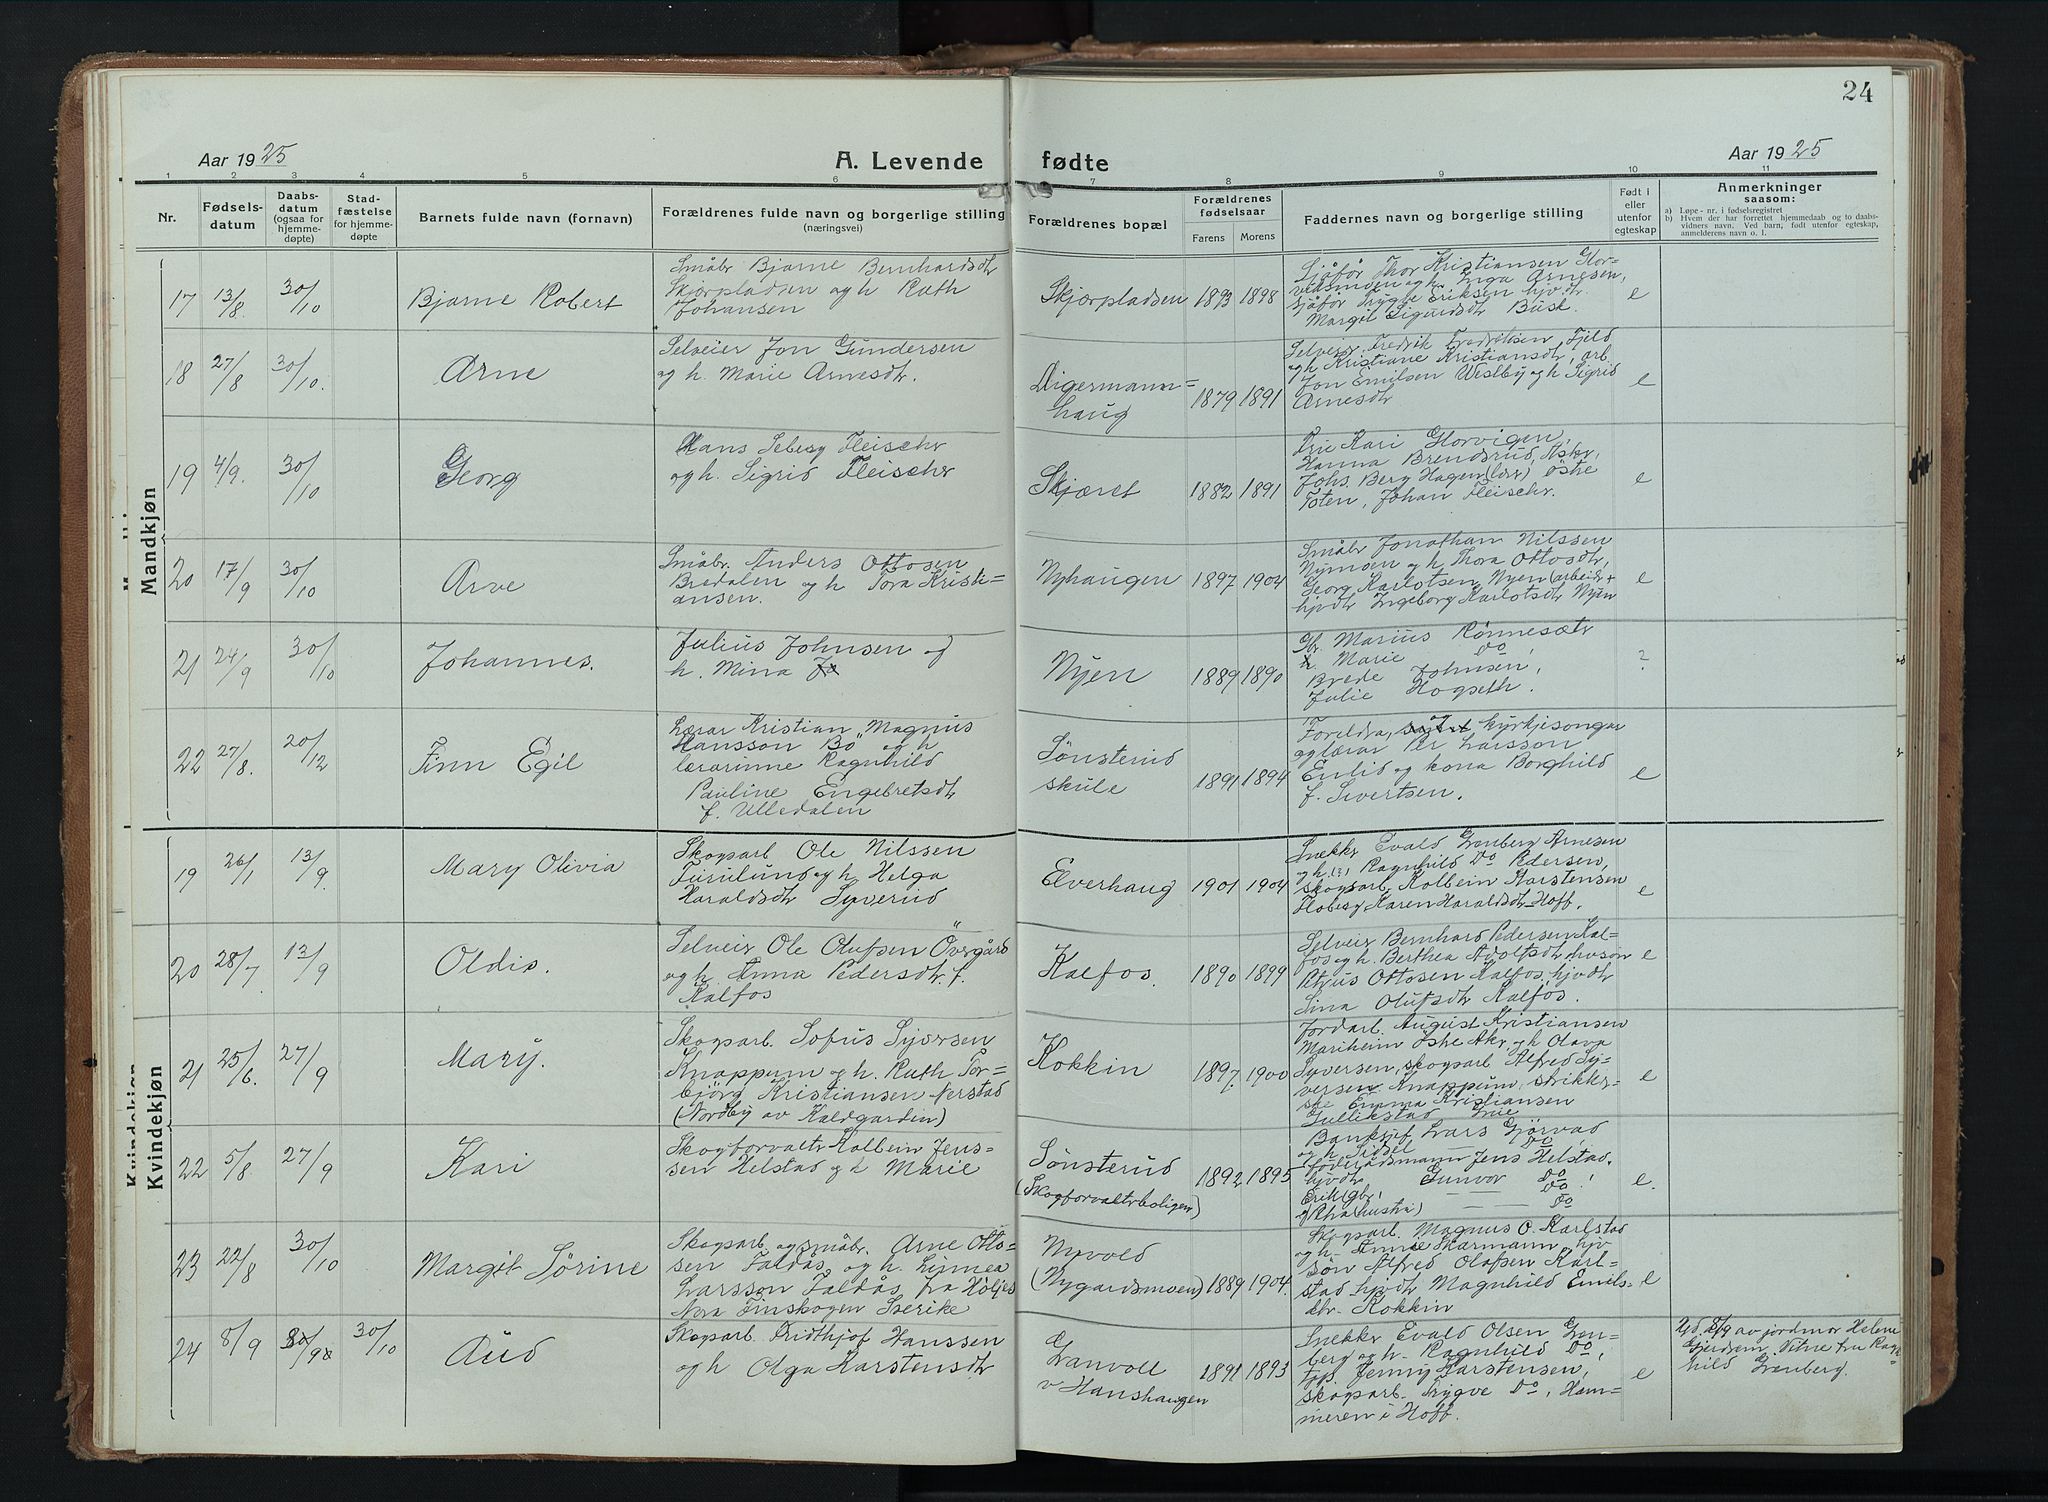 24
Aar 1925
A. Levende
fødte
Aar 1925
1 2 3 4 5 6 7 8 9 10 11
Nr.
Fødsels-
datum
Daabs-
datum
(ogsaa for
hjemme-
døpte)
Stad-
fæstelse
for hjemme-
døpte
Barnets fulde navn (fornavn)
Forældrenes fulde navn og borgerlige stilling
(næringsvei)
Forældrenes bopæl
Forældrenes
fødselsaar
Farens Morens
Faddernes navn og borgerlige stilling
Født i
eller
utenfor
egteskap
Anmerkninger
saasom:
a) Løpe-nr. i fødselsregistret
b) Hvem der har forrettet hjemmedaab og to daabs-
vidners navn. Ved barn, født utenfor egteskap,
anmelderens navn o. l.
Mandkjøn
17 13/8. 30/10 Bjarne Robert
Småbr Bjarne Bernhardsdtr
Skjærpladsen og h Ruth
Johansen
Skjærpladsen 1893 1898
Sjåfør Thor Kristiansen Glor-
vidsmoen og h Inga Arnesen,
sjåfør Trygve Eriksen hjvdtr
Margit Sigurdsdtr Busk.
e
18 27/8 30/10. Arne
Selveier Jon Gundersen
og h. Marie Arnesdtr.
Digermann=
haug
1879 1891
Selveier Fredrik Fredriksen Fjeld
og h Kristiane Kristiansdtr, arb
Jon Emilsen Westby og h Sigrid
Arnesdtr
e
19 4/9. 30/10 Georg
Hans Seberg Fleischer
og h. Sigrid Fleischer
Skjæret 1882 1891
Frie Kari Glorvigen,
Hanna Brendsrud, Asker,
Johs. Berg Hagen (lær) Østre
Toten, Johan Fleischr.
e
20 17/9 30/10 Arve
Småbr. Anders Ottosen
Bredalen og h Tora Kristi=
ansen.
Nyhaugen 1897 1904
Småbr Jonathan Nilssen
Nymoen og h Thora Ottosdtr,
Georg Karlotsen Nyen (arbeidr +
hjvdtr Ingeborg Karlotsdtr Nyen
e
21 24/9 30/10 Johannes.
Julius Johnsen og
h. Mina
Nyen 1889 1890
Gbr Marius Rønnesætr
h. Marie Do
Brede Johnsen,
Julie Hogseth.
?
22 27/8. 20/12 Finn Egil
Lærar Kristian "Magnus
Hansson Bö" og h
lærarinne Ragnhild
Pauline Engebretsdtr
f. Ulledalen
Sønsterud
skule
1891 1894
Foreldra, kyrkjesongar
og lærar Per Larsson
Enlid og kona Borghild
f. Sivertsen.
e
Kvindekjøn
19 26/1 13/9. Mary Olivia
Skogsarb Ole Nilssen
Furulund og h Helga
Haraldsdtr Syverud
Elverhaug 1901 1904
Snekkr Evald Grenberg Arnesen
og h, Ragnhild Do Pedersen,
skogsarb. Kolbein Karstensen
Floberg Karen Haraldsdtr Hoff.
e
20 28/7. 13/9 Oldis.
Selveier Ole Olufsen Övergård
og h Anna Pedersdtr. f.
Kalfos
Kalfos. 1890 1899
Selveir Bernhard Pedersen Kal-
fos og h. Berthea Adolfsdtr, husön
Petrus Ottosen Kalfos, hjvdtr
Sina Olufsdtr Kalfos.
e
21 25/6. 27/9 Mary.
Skogsarb. Sofus Syversen
Knappum og h. Ruth Tor=
björg Kristiansen Nerstad
(Nordby av Kaldgarden)
Kokkin 1897. 1900
Jordarb. August Kristiansen
Mariheim Østre Akr og h Olava
Syversen, skogsarb Alfred Sy-
versen Knappum, strikkr-
ske Emma Kristiansen
Gullikstad Grue
e
22 5/8. 27/9 Kari
Skogforvaltr Kolbein Jens-
sen Helstad og h Marie
Sønsterud
(Skogforvaltrboligen)
1892 1895
Banksjef Lars Gjørvad
og h Sidsel Do
föderådsmann Jens Helstad.
hjvdtr Gunvor Do
Erik (gbr) Do
e.
23 22/8 30/10 Margit Sørine
Skogsarb og småbr. Arne Otto=
sen Faldås og h. Linnea
Larsson Faldås fra Höljes
Nora Finskogen Sverike
Nyvold
(Nygardsmoen)
1889 1904.
Skogsarb. Magnus O. Karlstad
og h. Annie Skarmann, hjv
sön Alfred Olafsen Karl-
stad hjvdtr Magnhild Emils-
dtr. Kokkin
e
24 8/9 30/10 Aud
Skogsarb. Fridthjof Hanssen
og h Olga Karstensdtr
Granvoll
v Hanshaugen
1891 1893
Snekkr Evald Olsen Gren-
berg og h. Ragnhild Do,
Frk Jenny Karstensen,
skogsarb. Trygve Do, Ham-
meren i Hoff.
e
Hjd. 8/9 av jordmor Helene
Gjerdrum. Vitne fru Ragn=
hild Grenberg.